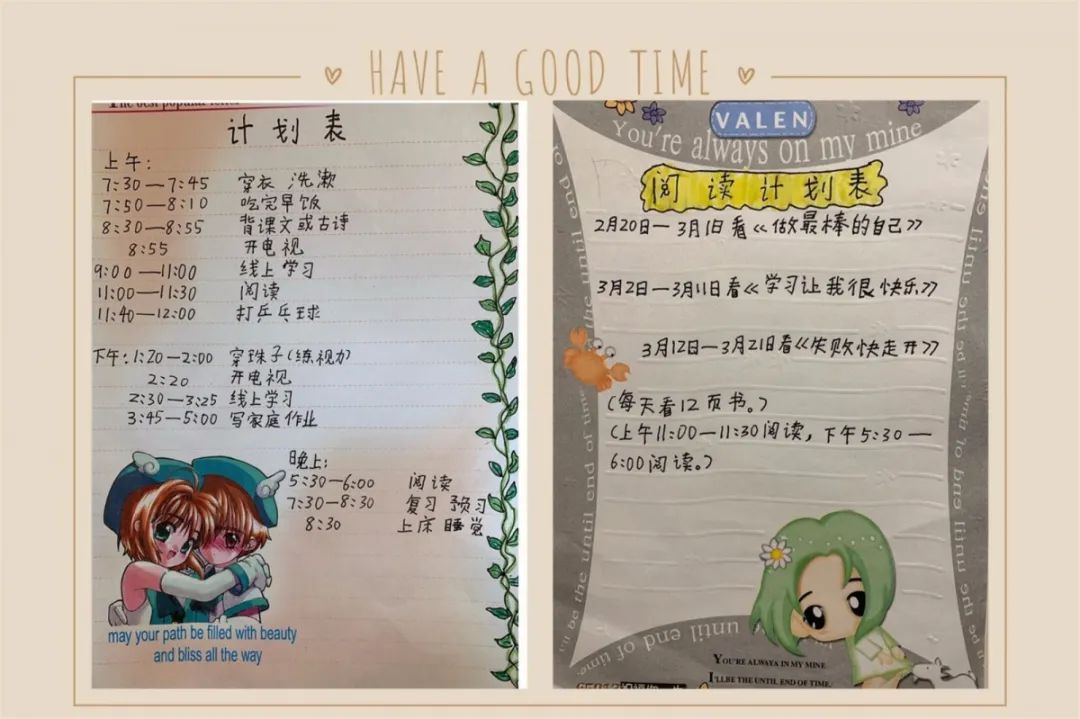 HAVE A GOOD TIME
The best popular letter
计划表
上午:
7:30—7:45 穿衣 洗漱
7:50—8:10 吃完早饭
8:30—8:55 背课文或古诗
8:55 开电视
9:00—11:00 线上学习
11:00—11:30 阅读
11:40—12:00 打乒乓球
下午:1:20—2:00 穿珠子(练视力)
2:20 开电视
2:30—3:25 线上学习
3:45—5:00 写家庭作业
晚上:
5:30—6:00 阅读
7:30—8:30 复习 预习
8:30 上床睡觉
may your path be filled with beauty
and bliss all the way
VALEN
You're always on my mine
阅读计划表
2月20日—3月1日看《做最棒的自己》
3月2日—3月11日看《学习让我很快乐》
3月12日—3月21日看《失败快走开》
(每天看12页书。)
(上午11:00—11:30阅读,下午5:30—
6:00阅读。)
I'll be the until end of time.
until end of time.
YOU'RE ALWAYA IN MY MINE
I'LLBE THE UNTIL END OF TIME.